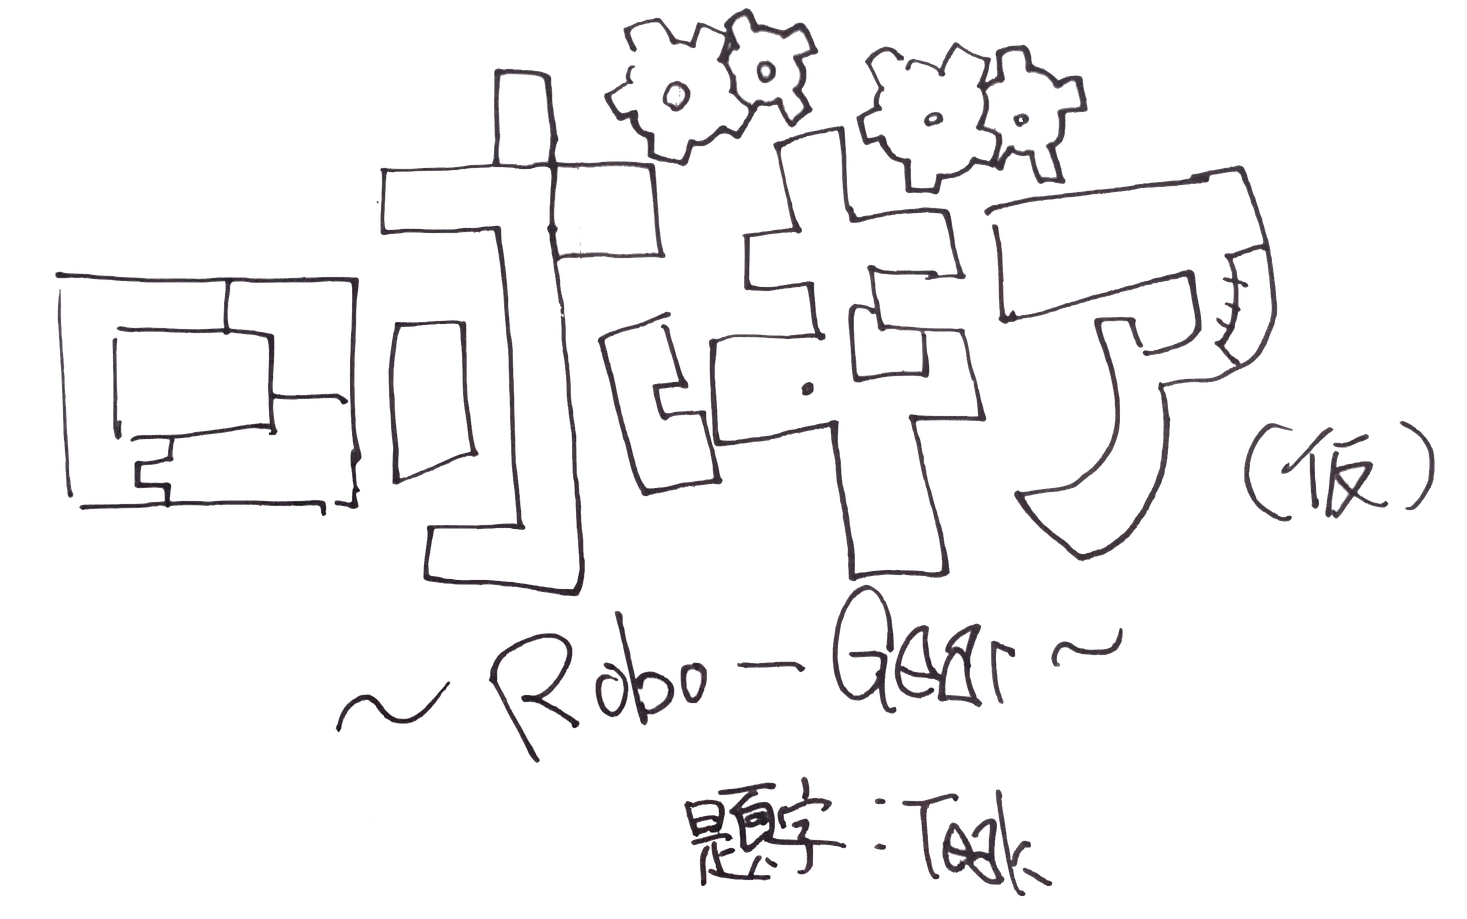 ロボギア(仮)
～Robo－Gear～
題字:Teak